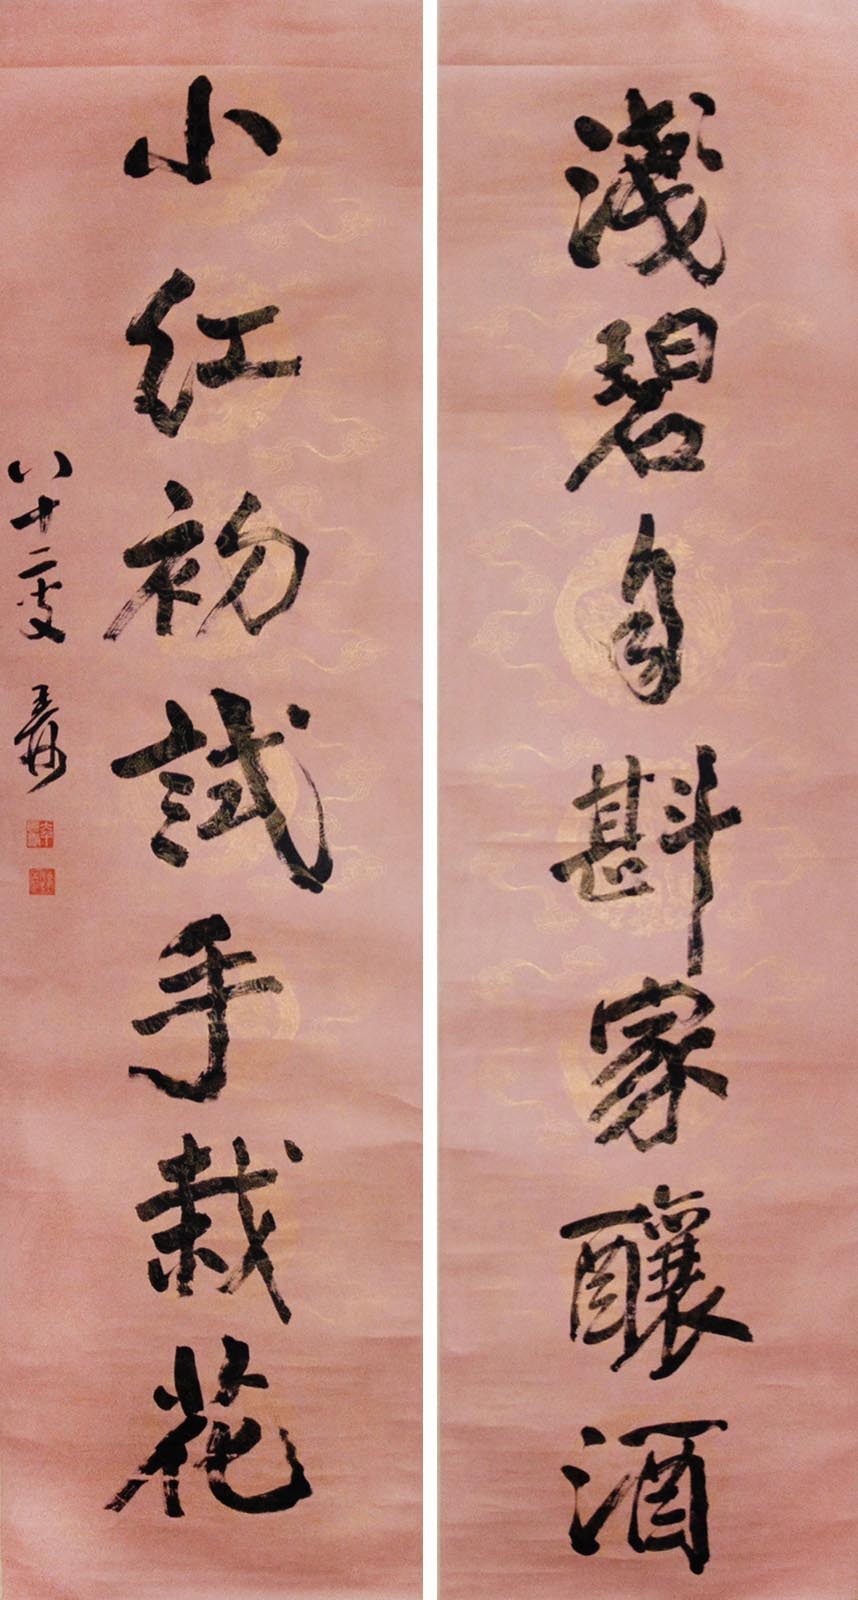 淺碧自斟家釀酒
小紅初試手栽花
八十二叟